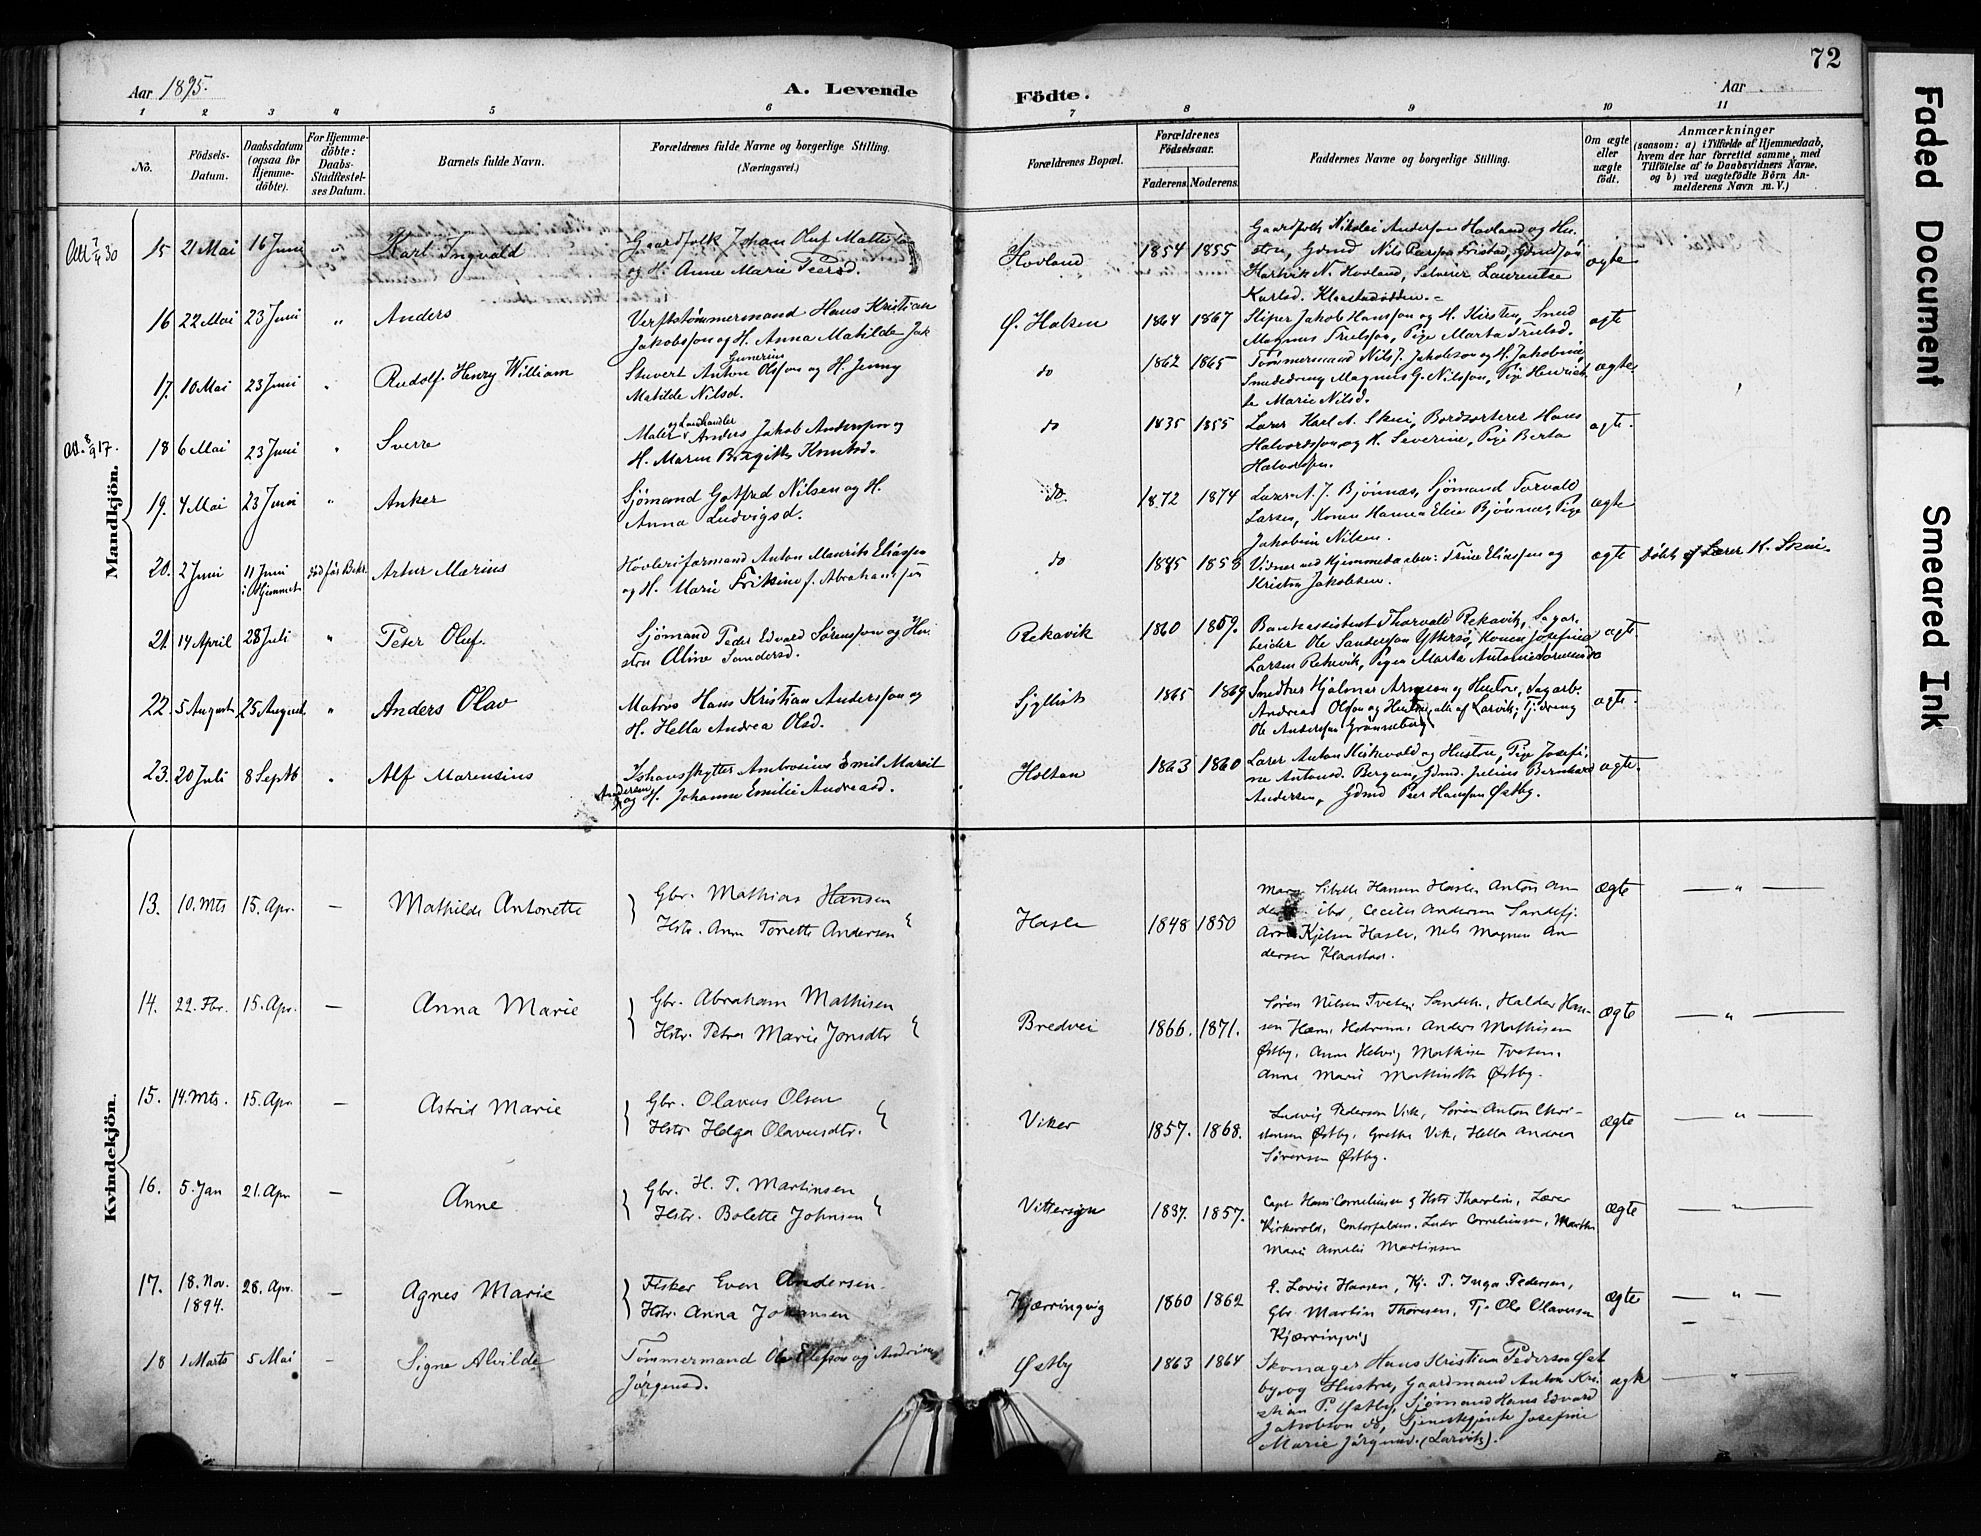 72
Aar 1895.
A. Levende
Födte.
Aar
1 2 3 4 5 6 7 8 9 10 11
No.
Födsels-Datum.
Daabsdatum (ogsaa for Hjemme-döbte).
For Hjemme-döbte: Daabs-Stadfæstel-ses Datum.
Barnets fulde Navn.
Forældrenes fulde Navne og borgerlige Stilling. (Næringsvei.)
Forældrenes Bopæl.
Forældrenes Födselsaar.
Faderens. Moderens.
Faddernes Navne og borgerlige Stilling.
Om ægte eller uægte födt.
Anmærkninger
(saasom: a) i Tilfælde af Hjemmedaab, hvem der har forrettet samme, med Tilföielse af to Daabsvidners Navne, og b) ved uægtefödte Börn An-melderens Navn m. V.)
Mandkjön.
Att 7/4 30
15 21 Mai 16 Juni " Karl Ingvald
Gaardfolk Johan Oluf Mattis
og H. Anne Marie Peersd.
Hovland 1854 1855
Gaardfolk Nikolai Anderssen Hovland og Hu-
stru, Gdmd Nils Hartvik N. Hovland, Laurentse
Karlsd. Klaastadødden.
ægte
16 22 Mai 23 Juni " Anders
Verftstømmermand Hans Kristian
Jakobsson og H. Anna Matilde Jak
Ø. Halsen 1864 1867
Skiper Jakob Hansson og H. Kirsten, Smed
Magnus Truelsson, Pige Marta Truelsd.
ægte
17. 10 Mai 23 Juni " Rudolf Henry William
Stuvert Anton Gunerius Olsson og H. Jenny
Matilde Nilsd.
do 1862 1865
Tømmermand Nils J. Jakobson og H. Jakobine,
Smededreng Magnus G. Nilsson, Pige Henriet-
te Marie Nilsd.
ægte
Att. 8/9 17.
18 6 Mai 23 Juni " Sverre
Maler og Landhandler Anders Jakob Andersson og
H. Maren Birgitte Knutsd.
do 1835 1855
Lærer Karl A. Skui, Bordsorterer Hans
Halvordsson og H. Severine, Pige Berta
Halvorsen.
ægte
19. 4 Mai 23 Juni " Anker
Sjömand Gotfred Nilsen og H.
Anna Ludvigsd.
do 1872 1874
Lærer A. J. Bjönnes, Sjömand Torvald
Larsen, Konen Hanna Elise Bjönnes, Pige
Jakobine Nilsen.
ægte
20. 2 Juni 11 Juni i Hjemmet død før Bekr. Artur Marius
Hövleriformand Anton Maurits Eliassen
og H. Marie Eriksine f. Abrahamsen
do 1845 1858
Vidner ved Hjemmedaaben: Trine Eliassen og
Kristen Jakobsen.
ægte Døbt af Lærer K. Skui.
21. 14 April 28 Juli " Peter Oluf.
Sjömand Peder Edvard Sørensson og Hu-
stru Oline Sandersd.
Rekavik 1860 1859.
Bankassistent Thorvald Rekavik, Sagar-
beider Ole Sandersson Ytterø, Konen Josefine
Larsen Rekevik, Pigen Marta Antonie
ægte
22. 5 August 25 August " Anders Olav
Matros Hans Kristian Andersson og
H. Hella Andrea Olsd.
1865 1869
Hjalmar og Hustru, Sagarb.
Andreas Olsson og Hustru, alle af Larvik,
Ole Andersson Grønneberg
ægte
23. 20 Juli 8 Septb " Alf Marensius
Ishavsskytter Ambrosius Emil Marcil
Andersen og H. Johanne Emilie Andreasd.
Holtan 1863 1860
Lærer Anton Kirkevold og Hustru, Pige Josefi-
ne Antonsd. Bergan, Gdmd. Julius Bernhard
Andersen, Gdmd Peer Hansson Østby.
ægte
Kvindekjön.
13. 10. Mts 15. Apr. — Mathilde Antonette
Gbr. Mathias Hansen
Hstr. Anne Tonette Andersen
Hasle 1848 1850
Sibelle Hansen Hasle, Anton An
ibd, Cecilie Andersen Sandefj.
Kjelsen Hasle, Nels Magnus An
dersen Klaastad.
ægte — " —
14. 22. Fbr. 15. Apr. — Anna Marie
Gbr. Abraham Mathisen
Hstr. Petra Marie Jonsdtr
Bredvei 1866. 1871.
Søren Nilsen Tveten, Haldor Han-
sen Anders Mathisen
Østby, Anne Helvig Mathisen Tveten,
Anne Marie Mathisdtr Østby.
ægte — " —
15. 14. Mts. 15. Apr — Astrid Marie
Gbr. Olavus Olsen
Hstr. Helga Olavusdtr.
Viker 1857. 1868.
Ludvig Pedersen Vik, Søren Anton Chri-
stensen Østby, Grethe Vik, Hella Andrea
Sørensen Østby.
ægte — " —
16. 5. Jan 21. Apr — Anne
Gbr. H. T. Martinsen
Hstr. Bolette Johnsen
Vittersøn 1837. 1857.
Capt Hans Corneliusen og Hstr Tharaline, Lærer
Kirkevold, Ludv Corneliusen, Marthe
Marie Amalie Martinsen
ægte — " —
17. 18. Nov. 1894. 28. Apr. — Agnes Marie
Fisker Even Andersen
Hstr. Anna Johannsen
Kjærringvig 1860 1862
E. Lovise Hansen, Kj. P. Inga Pedersen,
Gbr Martin Thoresen, Tj. Ole Olavesen
Kjærringvig
ægte — " —
18 1 Marts 5 Mai — Signe Alvilde
Tømmermand Ole Elefson og Andrine
Jörgensd.
Østby 1863 1864
Skomager Hans Kristian Pedersen Øst
by og Hustru, Gaardmand Anton Kri
stian P. Østby, Sjömand Hans Edvard
Jakobson do, Josefine
Marie Jörgensd. (Larvik).
ægte — " —
Faded Document
Smeared Ink